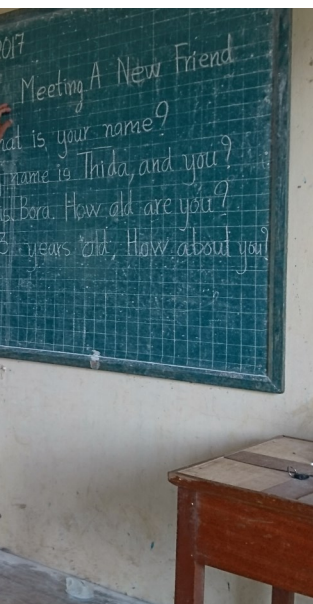 2017
Meeting A New Friend
hat is your name?
name is Thida, and you?
is Bora. How old are you?
3 years old, How about you?